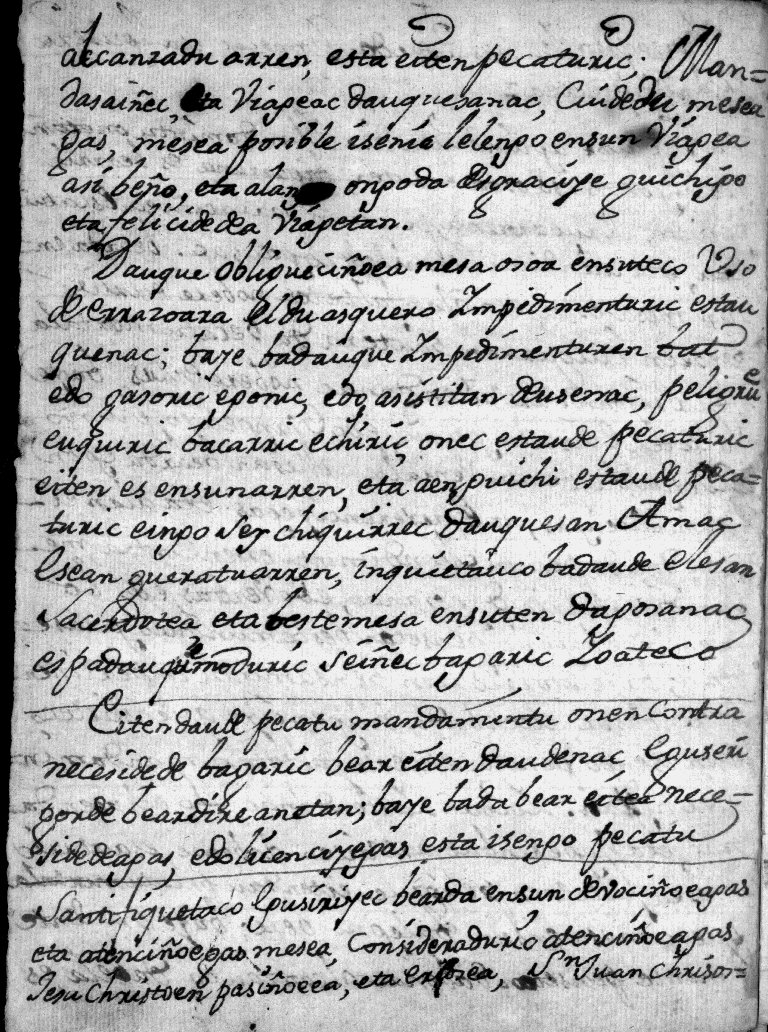 alcanzadu arren, esta eiten pecaturic; Man=
dasaiñec, eta Viageac dauquesanac, Cuidedu mesea
gas, mesea posible isenic lelengo ensun Viagea
asi beño, eta alan ongoda desgraciye guichigo
eta felicidedea Viagetan.
Dauque obligueciñoea mesa osoa ensuteco Uso
de errazoara elduasquero Impedimenturic estau
quenac; baye badauque Impedimenturen bat
edo gasoric egonic, edo asistitan deusenac, peligru
euquiric bacarric echiric, onec estaude pecaturic
eiten es ensunarren, eta aen guichi estaude peca=
turic eingo Seychiquirrec dauquesan Amac
Esean gueratuarren, inquietauco badaude Elesan
Sacerdotea eta bestemesa ensuten dagosanac
espadauque moduric Seiñec bagaric Zoateco
Eiten daude pecatu mandamentu onen Contra
necesidede bagaric bear eiten daudenac Eguseri
gorde beardirean etan; baye bada bear eitea nece=
sidedeagas, edo licenciyegas esta isengo pecatu
Santifiquetaco Egusiriyec bearda ensun devociñoeagas
eta atenciñoegas mesea, Consideraduric atenciñoeagas
Jesu Christoen pasiñoeea, eta eriotzea, Sn Juan Chrisos=